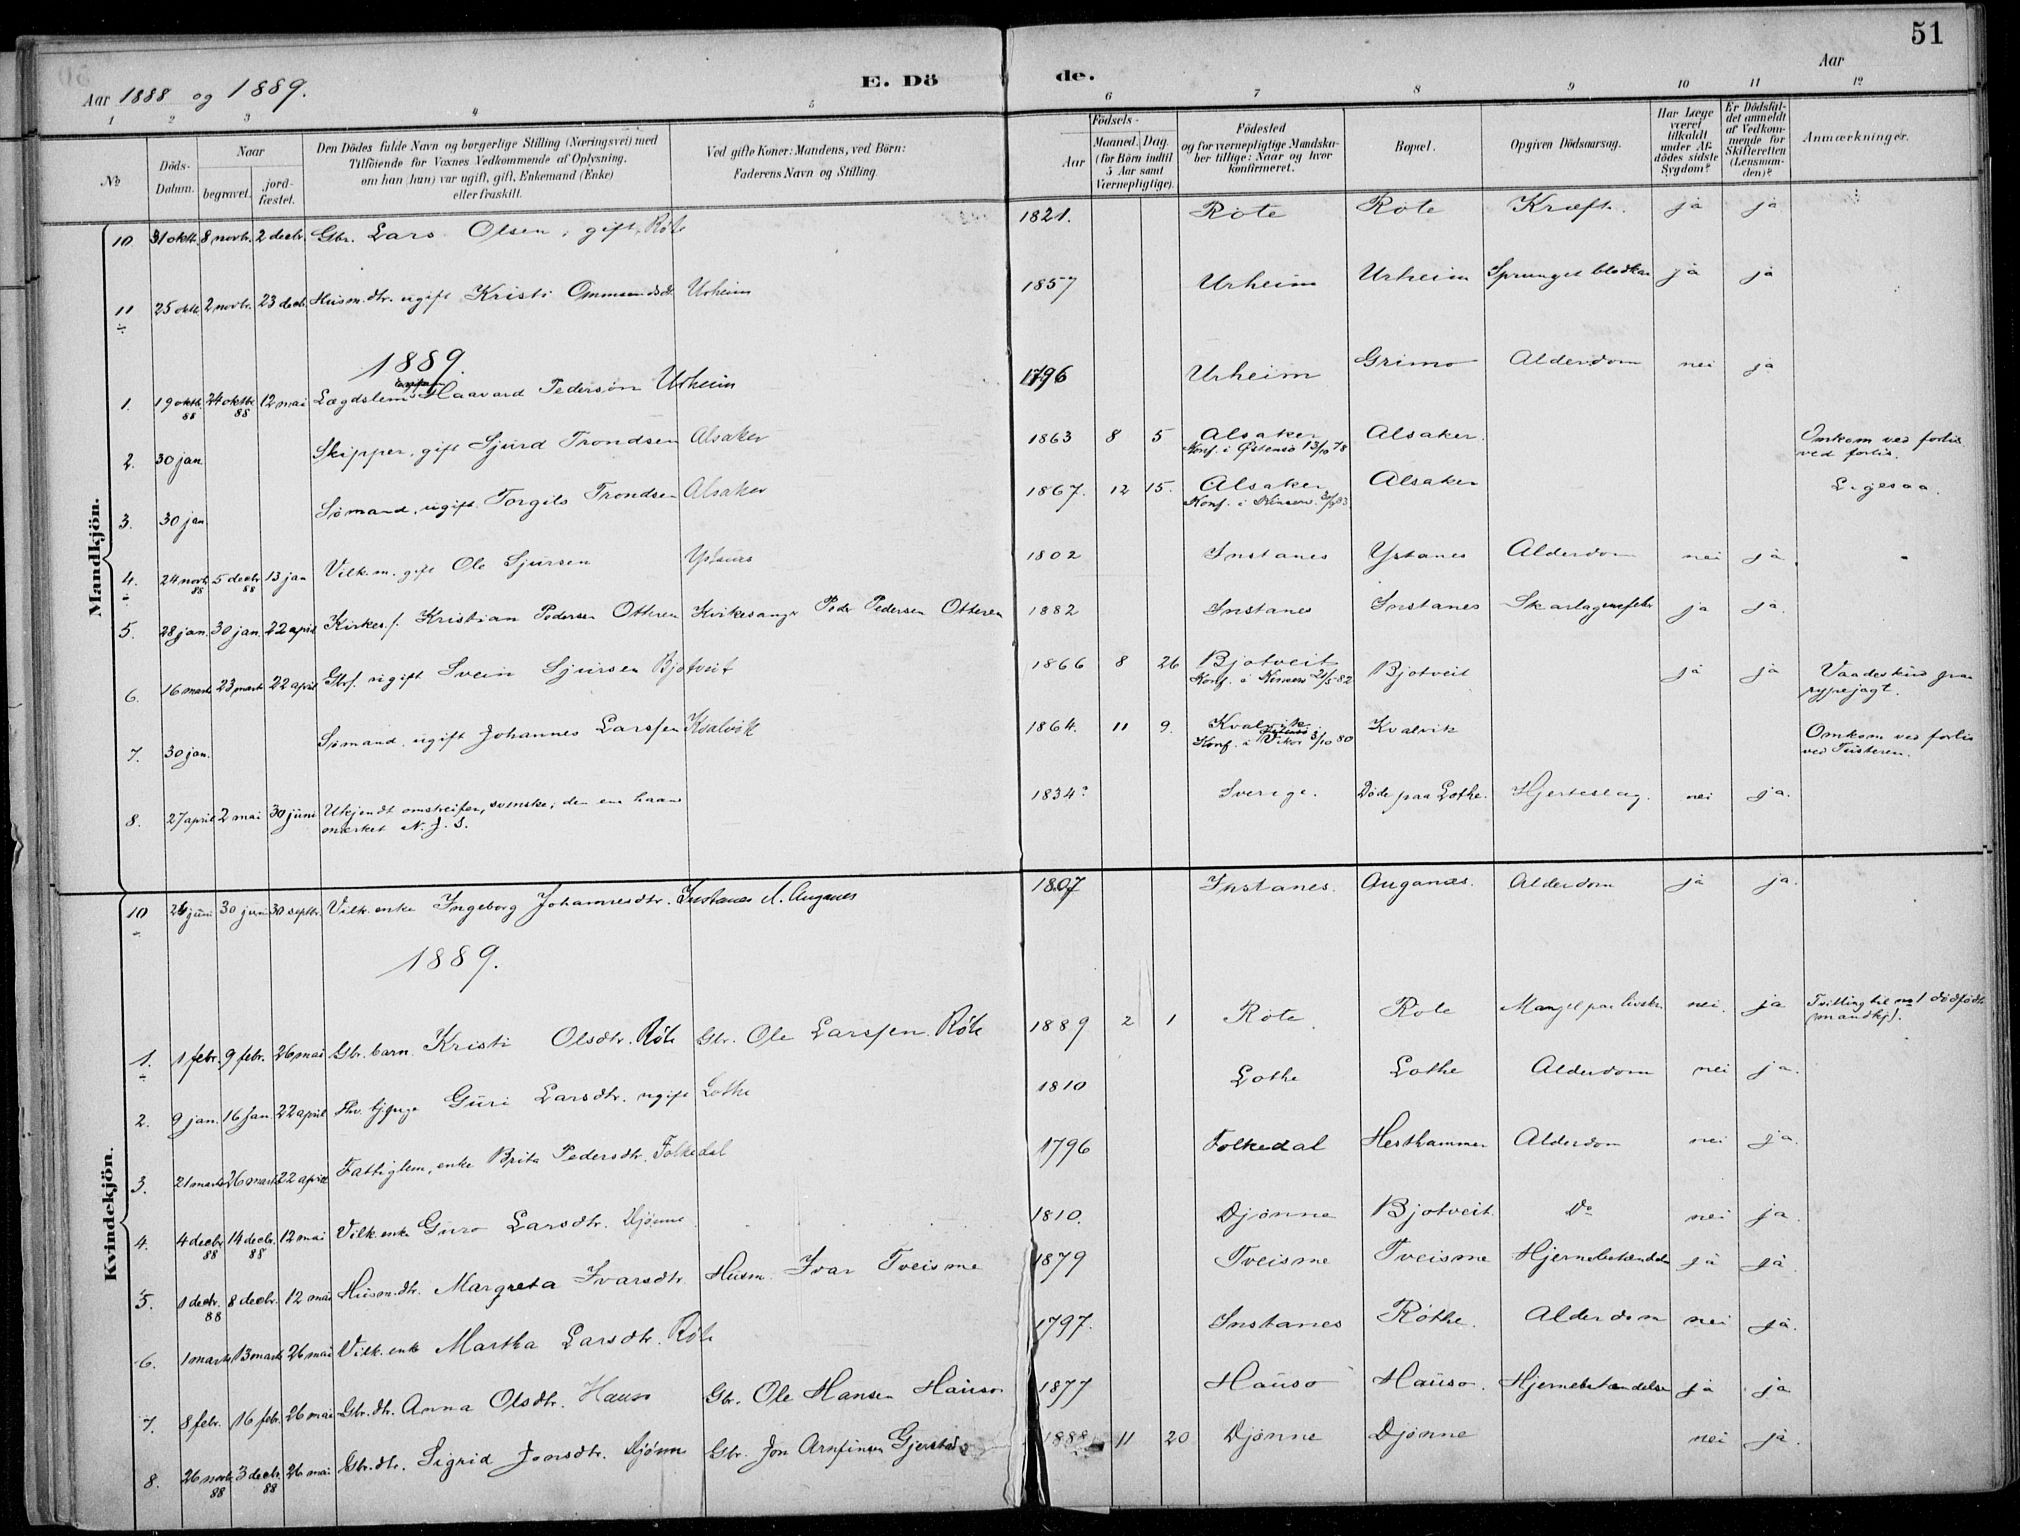 51
Aar 1888 og 1889.
E. Dö
de.
Aar
1 2 3 4 5 6 7 8 9 10 11 12
№
Döds-Datum.
Naar
begravet.
jord-fæstet.
Den Dödes fulde Navn og borgerlige Stilling (Næringsvei) med
Tilföiende for Voxnes Vedkommende af Oplysning,
om han (hun) var ugift, gift, Enkemand (Enke)
eller fraskilt.
Ved gifte Koner: Mandens, ved Börn:
Faderens Navn og Stilling.
Födsels-
Aar
Maaned. Dag.
(for Börn indtil
5 Aar samt
Værnepligtige).
Födested
og for værnepligtige Mandska-
ber tillige: Naar og hvor
konfirmeret.
Bopæl.
Opgiven Dödsaarsag.
Har Læge
været
tilkaldt
under Af-
dödes sidste
Sygdom?
Er Dödsfal-
det anmeldt
af Vedkom-
mende for
Skifteretten
(Lensman-
den)?
Anmærkninger.
Mandkjön.
10 31 oktb. 8 novbr. 2 decbr. Gbr. Lars Olsen, gift, Röte 1821. Röte Röte Kræft. ja ja
11 25 oktb. 2 novbr. 23 decb. Husm.dtr. ugift Kristi Ommundsdt. Urheim 1857 Urheim Urheim Sprunget blodkar ja ja
1889.
1. 19 oktb. 88 24 oktbr 88 12 mai Lægdslem Haavard Pedersøn Urheim 1796 Urheim Grimo Alderdom nei ja
2. 30 jan. Skipper, gift Sjurd Trondsen Alsaker 1863 8 5 Alsaker Alsaker. Omkom ved forlis
Konf. i Østensö 13/10 78 ved forlis.
3. 30 jan. Sømand, ugift Torgils Trondsen Alsaker 1867. 12 15. Alsaker Alsaker Ligesaa.
Konf. i Kinserv
4. 24 novb. 88 5 decbr 88 13 jan Vilk.m. gift Ole Sjursen 1802 Instanes Ystanes Alderdom nei ja.
5. 28 jan. 30 jan. 22 april Kirkes.s. Kristian Pedersen Otteren Kirkesanger Peder Pedersen Otteren 1882 Instanes Instanes Skarlagensfeber ja ja.
6. 16 marts 23 marts 22 april Gbrs. ugift Svein Sjursen Bjotveit 1866 8 26 Bjotveit Bjotveit ja ja Vaadeskud paa
Konf. i Kinserv 21/5 82 rypejagt.
7. 30 jan. Sømand, ugift Johannes Larssen Kvalvik 1864. 11 9. Kvalvik Kvalvik Omkom ved forlis
Konf. i Vikör 3/10 80 ved Tusteren.
8. 27 april 2 mai 30 juni Ukjendt omstreifer, svenske; den ene haand 1834? Sverige. Döde paa Lothe. Hjerteslag. nei ja.
mærket N. J. S.
Kvindekjön.
10 26 juni 30 juni 30 septbr. Vilk. enke Ingeborg Johannesdtr. Instanes Auganes 1807 Instanes. Auganæs. Alderdom ja ja.
1889.
1. 1 febr. 9 febr. 26 mai Gbr. barn. Kristi Olsdtr. Röte Gbr. Ole Larssen Röte 1889 2 1 Röte Röte Mangel paa livskr. nei. ja Tvilling til no 1 dödfödte
(mandkj).
2. 9 jan. 16 jan. 22 april Guri Larsdtr. ugift Lothe 1810 Lothe Lothe Alderdom nei ja.
3. 21 marts 26 marts 22 april Fattiglem, enke Brita Pedersdtr. Folkedal 1796 Folkedal Hesthammer Alderdom nei ja.
4. 4 decbr 88 14 decbr. 88 12 mai Vilk. enke Guro Larsdtr. Djönne 1810. Djönne Bjotveit Do nei ja.
5. 1 decbr. 88 8 decbr. 12 mai Husm.dtr. Margreta Ivarsdtr. Husm. Ivar Tveisme 1879 Tveisme Tveisme Hjernebetændelse ja ja.
6. 1 marts 13 marts 26 mai Vilk. enke Martha Larsdtr. Röte 1797. Instanes Röthe. Alderdom nei ja.
7. 8 febr. 16 febr. 26 mai Gbr. dtr. Anna Olsdtr. Hauso Gbr. Ole Hansen Hauso 1877 Hauso Hauso. Hjernebetændelse ja ja
8. 26 novb. 88 3 decbr. 88 26 mai Gbr. dtr. Sigrid Jonsdtr. Djönne Gbr. Jon Arnfinsen Gjerstad 1888 11 20 Djönne Djönne nei ja.